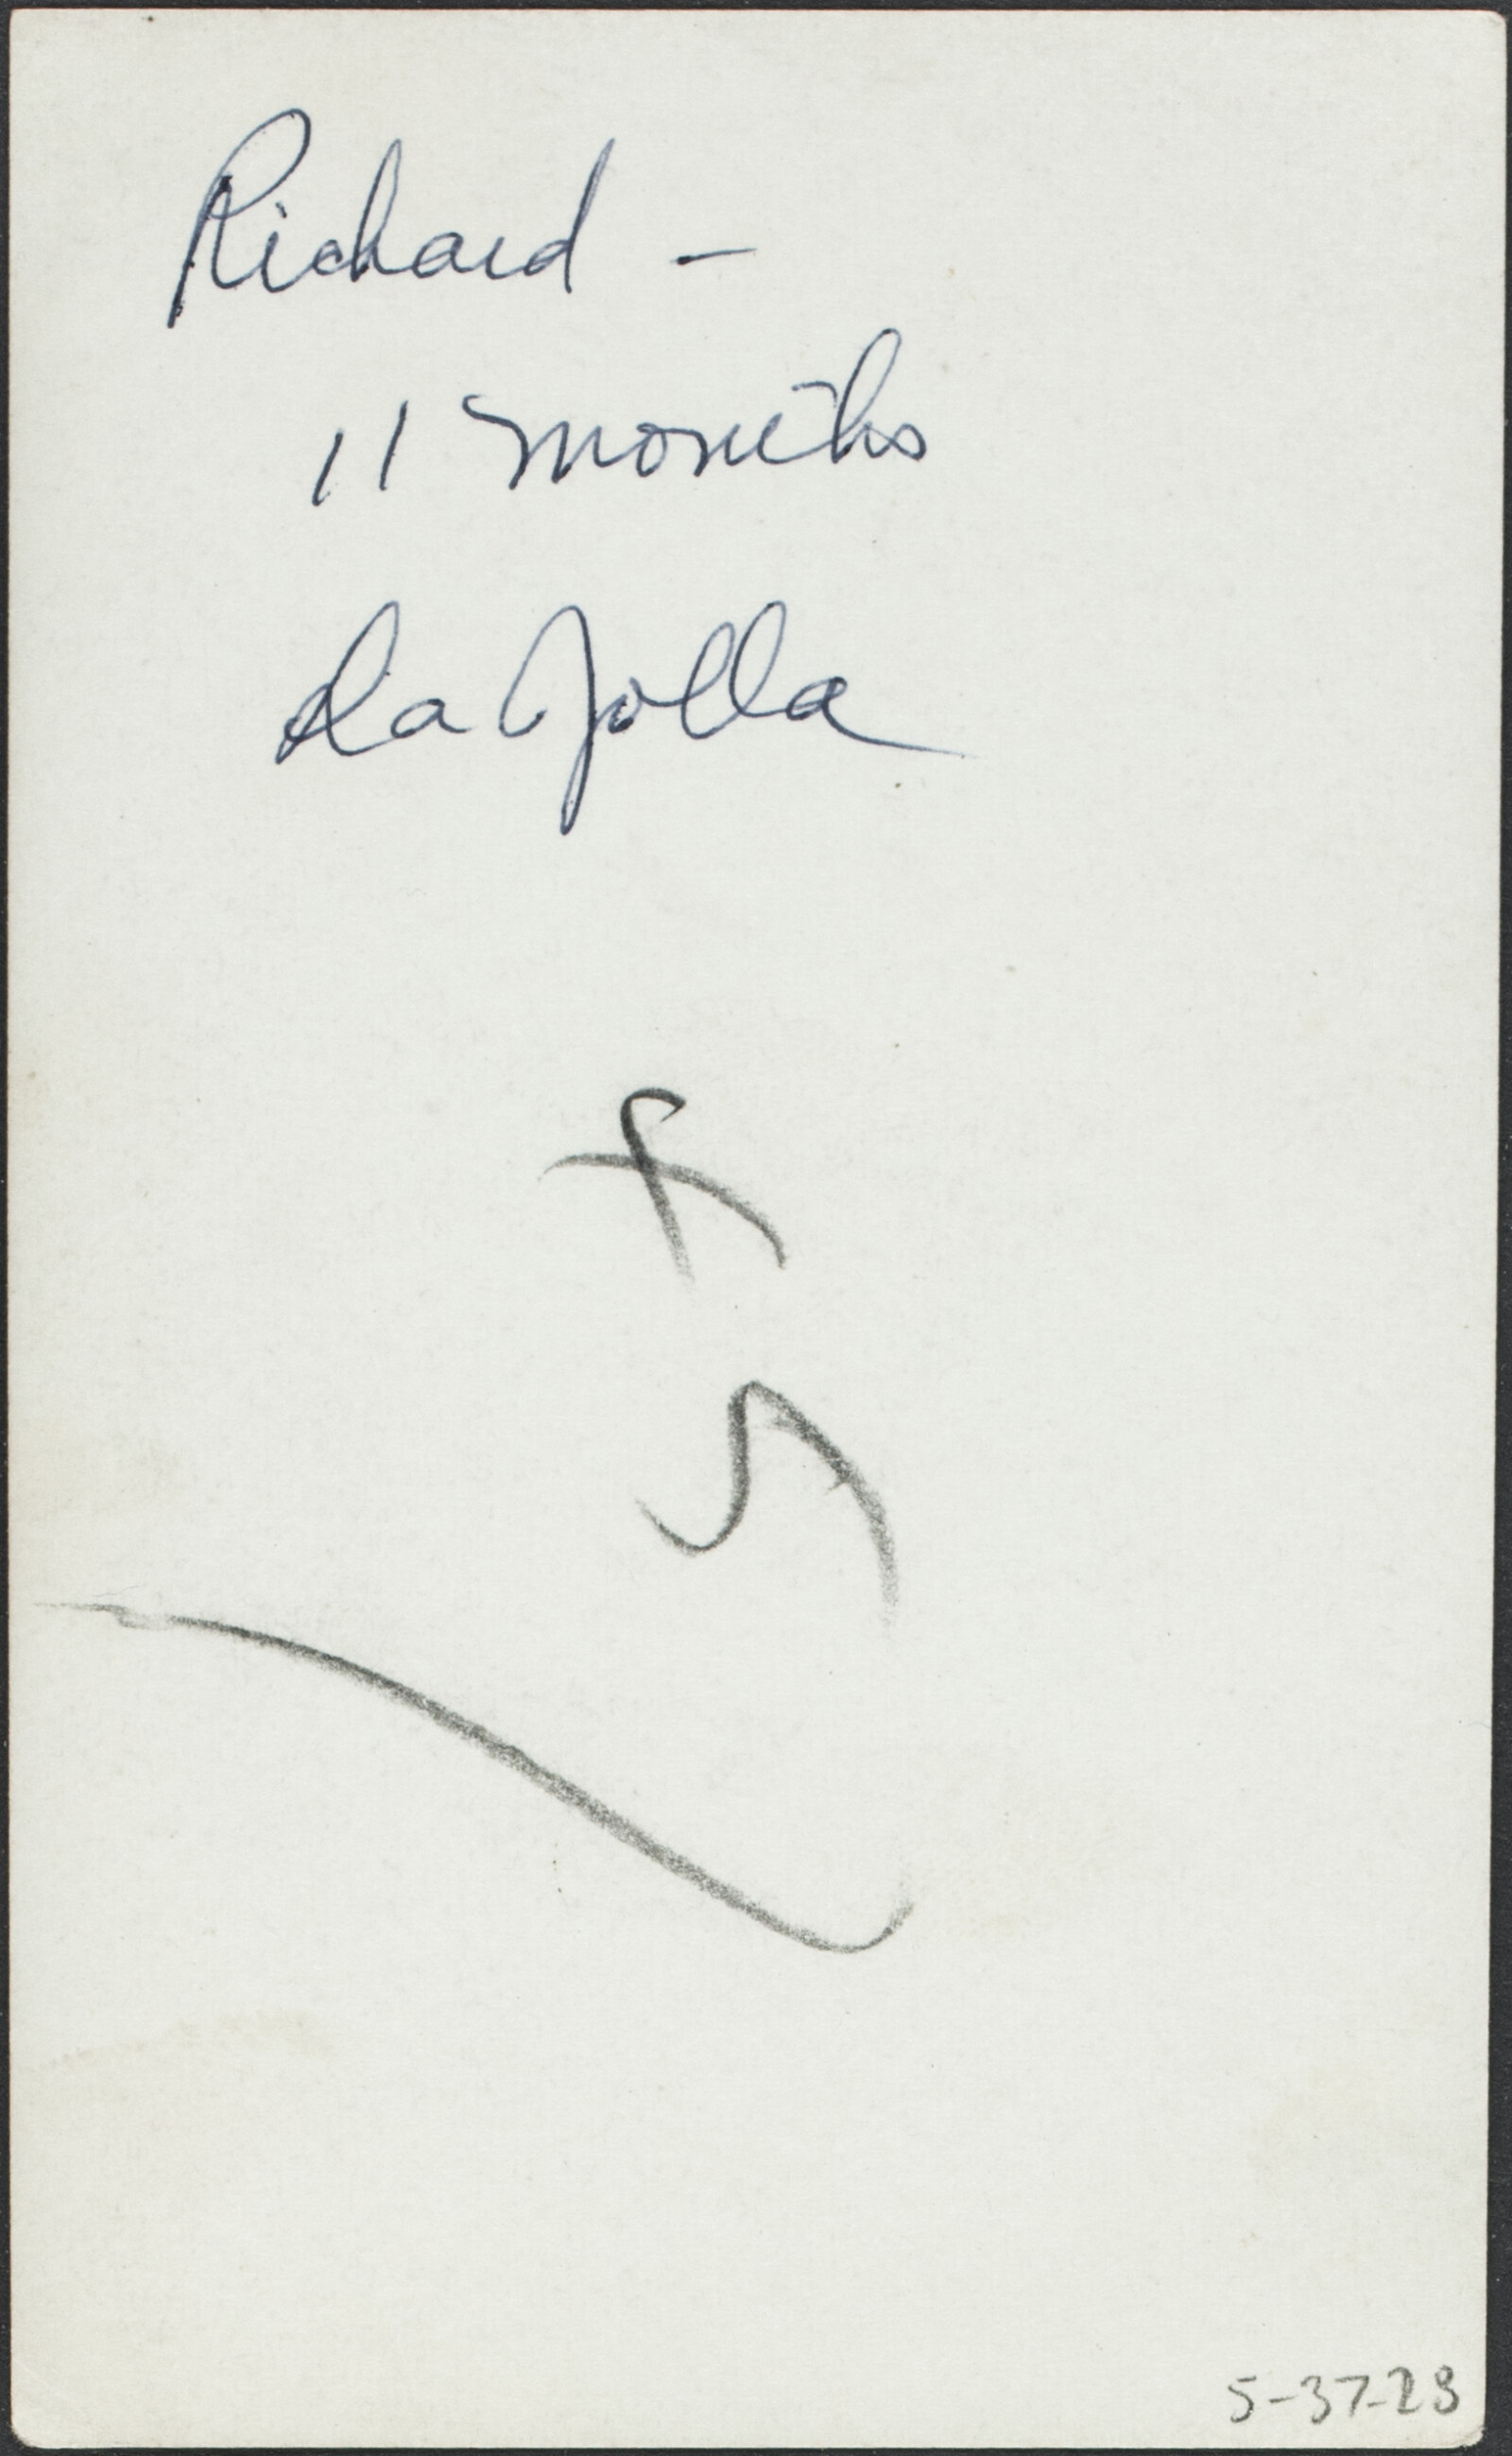 Richard -
11 months
La Jolla
5-37-23